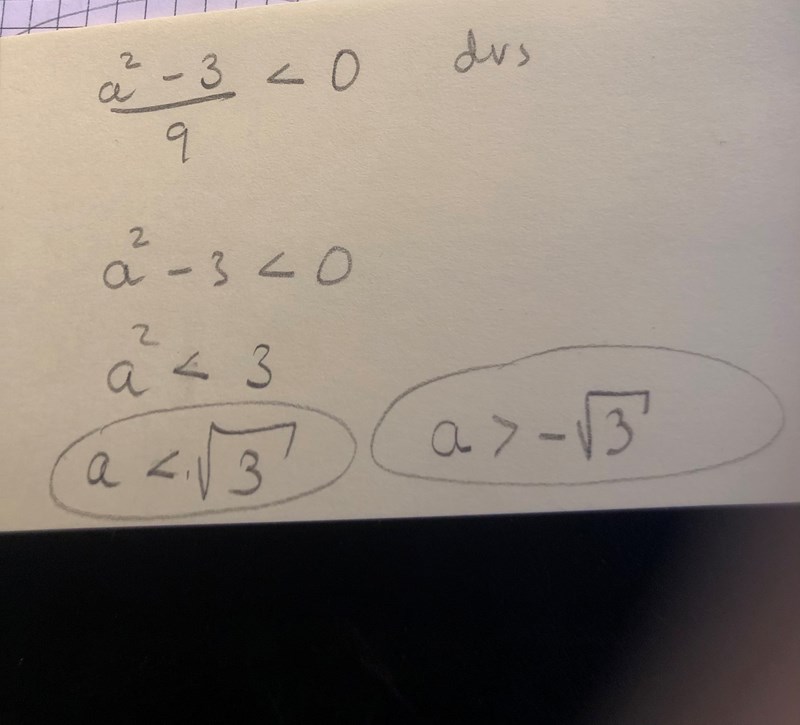 a² - 3 < 0 dvs
9
a² - 3 < 0
a² < 3
a < √3 a > -√3